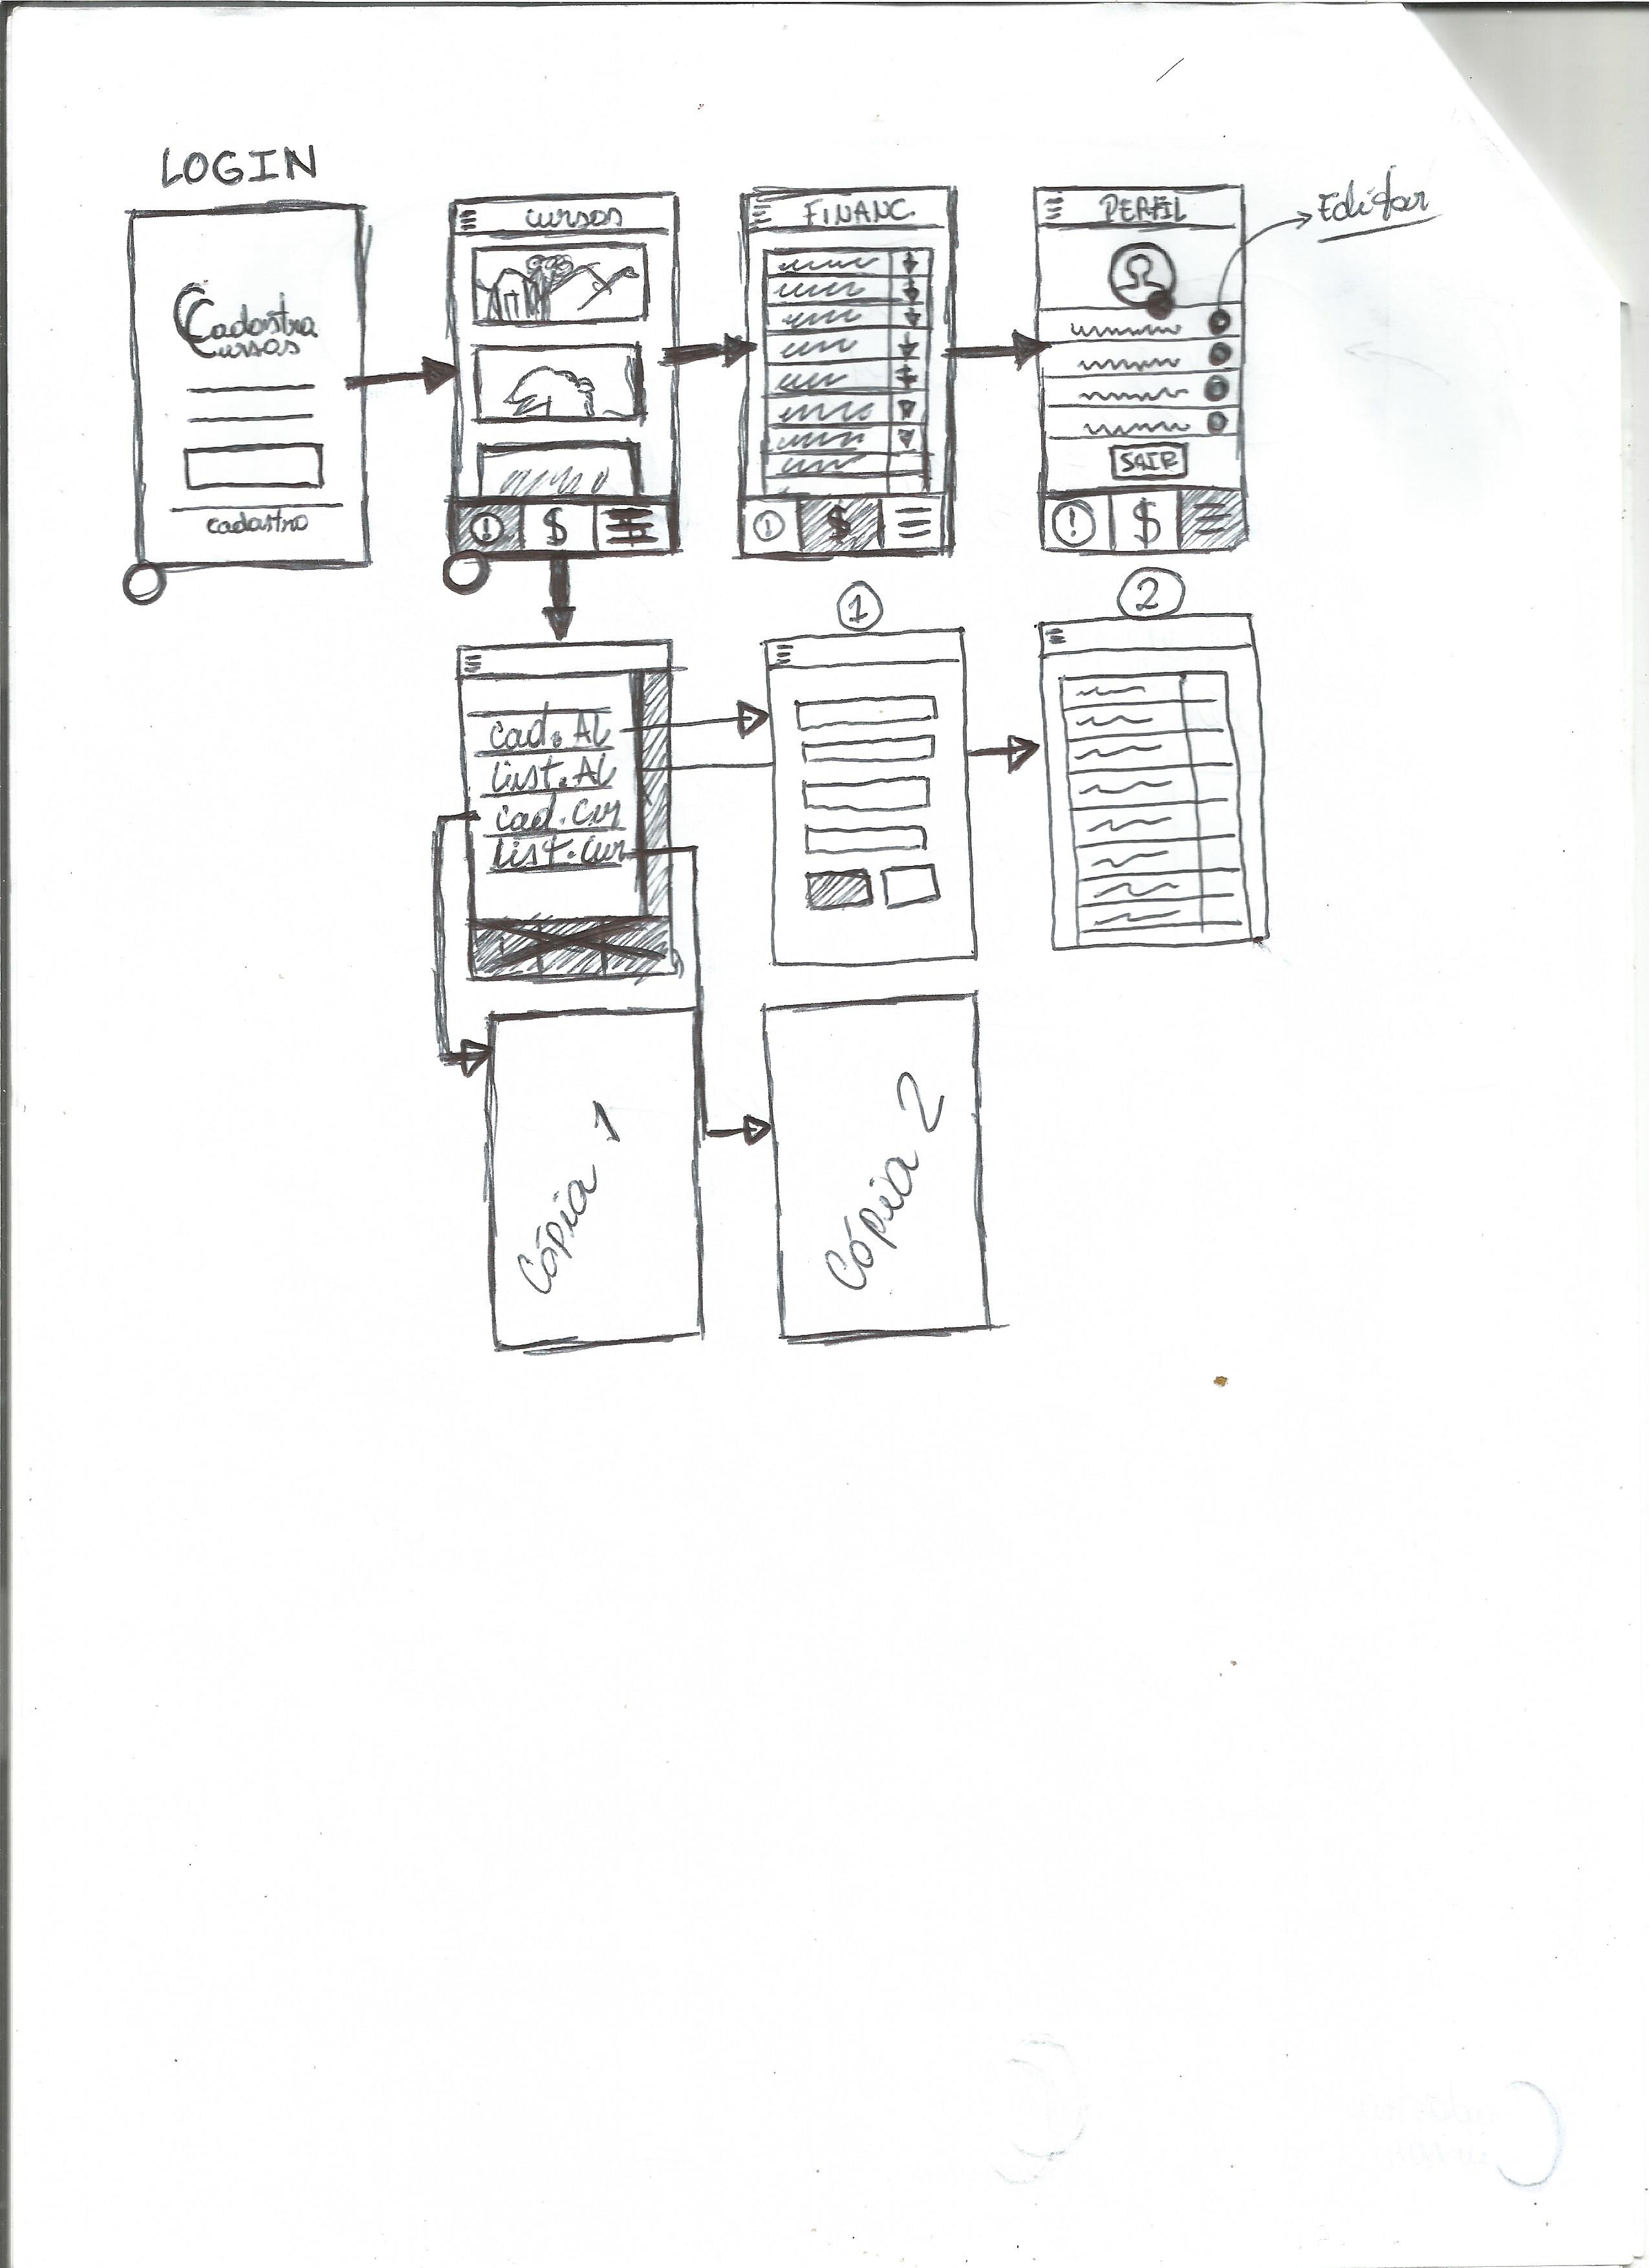 LOGIN
Cadastra
Cursos
cadastro
cursos
$
FINANC.
$
PERFIL
Editar
SAIR
$
cad. AL
List. AL
cad. Cur
List. Cur
1
2
Cópia 1
Cópia 2